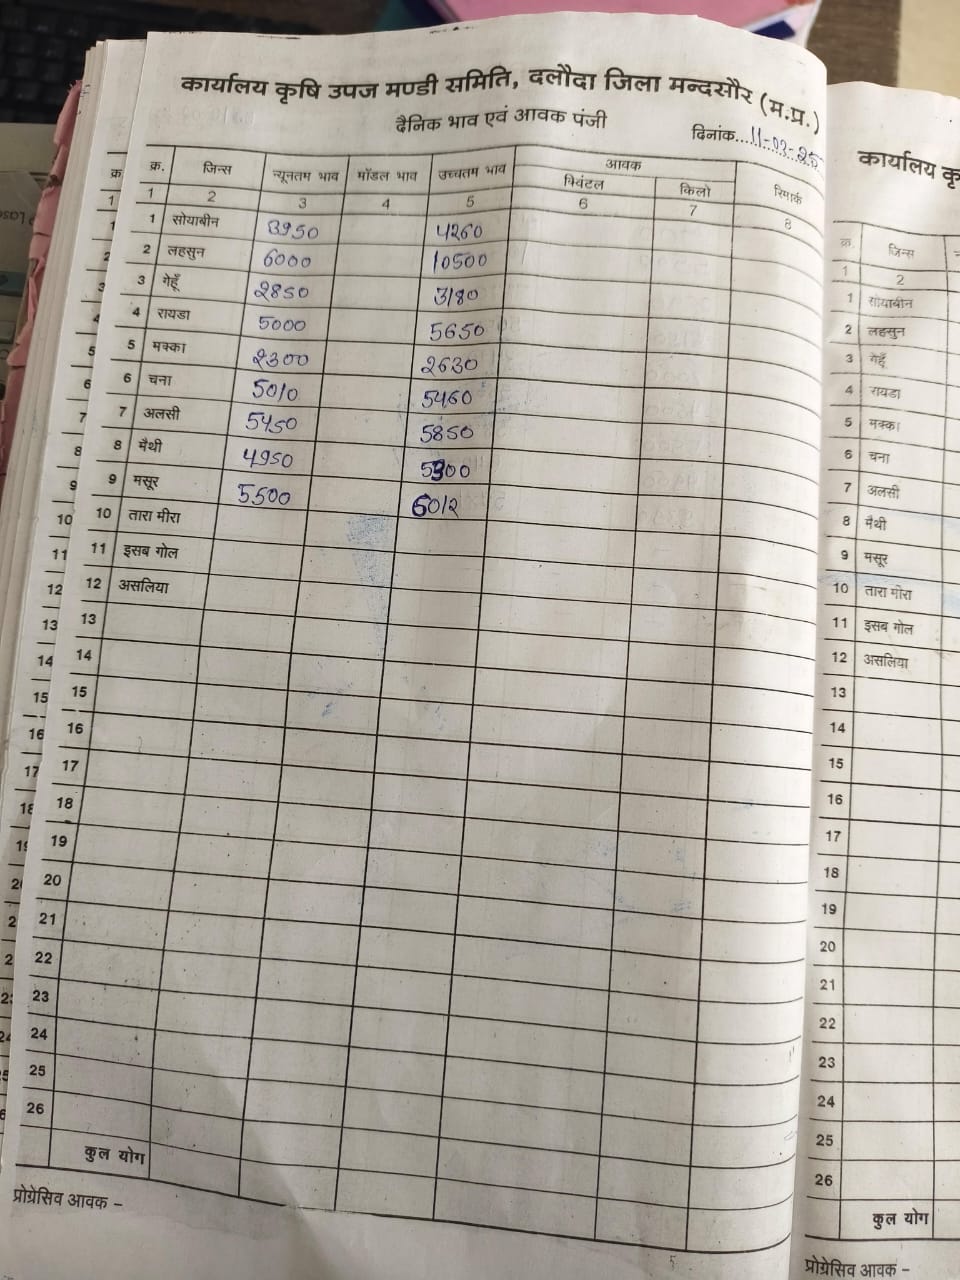 कार्यालय कृषि उपज मण्डी समिति, दलौदा जिला मन्दसौर (म.प्र.)
दैनिक भाव एवं आवक पंजी
दिनांक...11-03-25
क्र. जिन्स न्यूनतम भाव मॉडल भाव उच्चतम भाव आवक रिमार्क
क्विंटल किलो
1 2 3 4 5 6 7 8
1 सोयाबीन 3950 4260
2 लहसुन 6000 10500
3 गेहूँ 2850 3180
4 रायडा 5000 5650
5 मक्का 2300 2630
6 चना 5010 5460
7 अलसी 5450 5850
8 मैथी 4950 5300
9 मसूर 5500 6012
10 तारा मीरा
11 इसब गोल
12 असलिया
13
14
15
16
17
18
19
20
21
22
23
24
25
26
कुल योग
प्रोग्रेसिव आवक -
कार्यालय कृ
क्र. जिन्स
1 2
1 सोयाबीन
2 लहसुन
3 गेहूँ
4 रायडा
5 मक्का
6 चना
7 अलसी
8 मैथी
9 मसूर
10 तारा मीरा
11 इसब गोल
12 असलिया
13
14
15
16
17
18
19
20
21
22
23
24
25
26
कुल योग
प्रोग्रेसिव आवक -